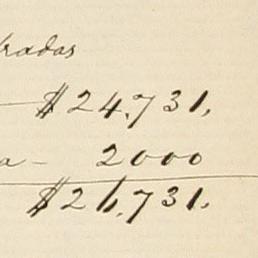 tradas
— $24,731,
a – 2000
$26,731.